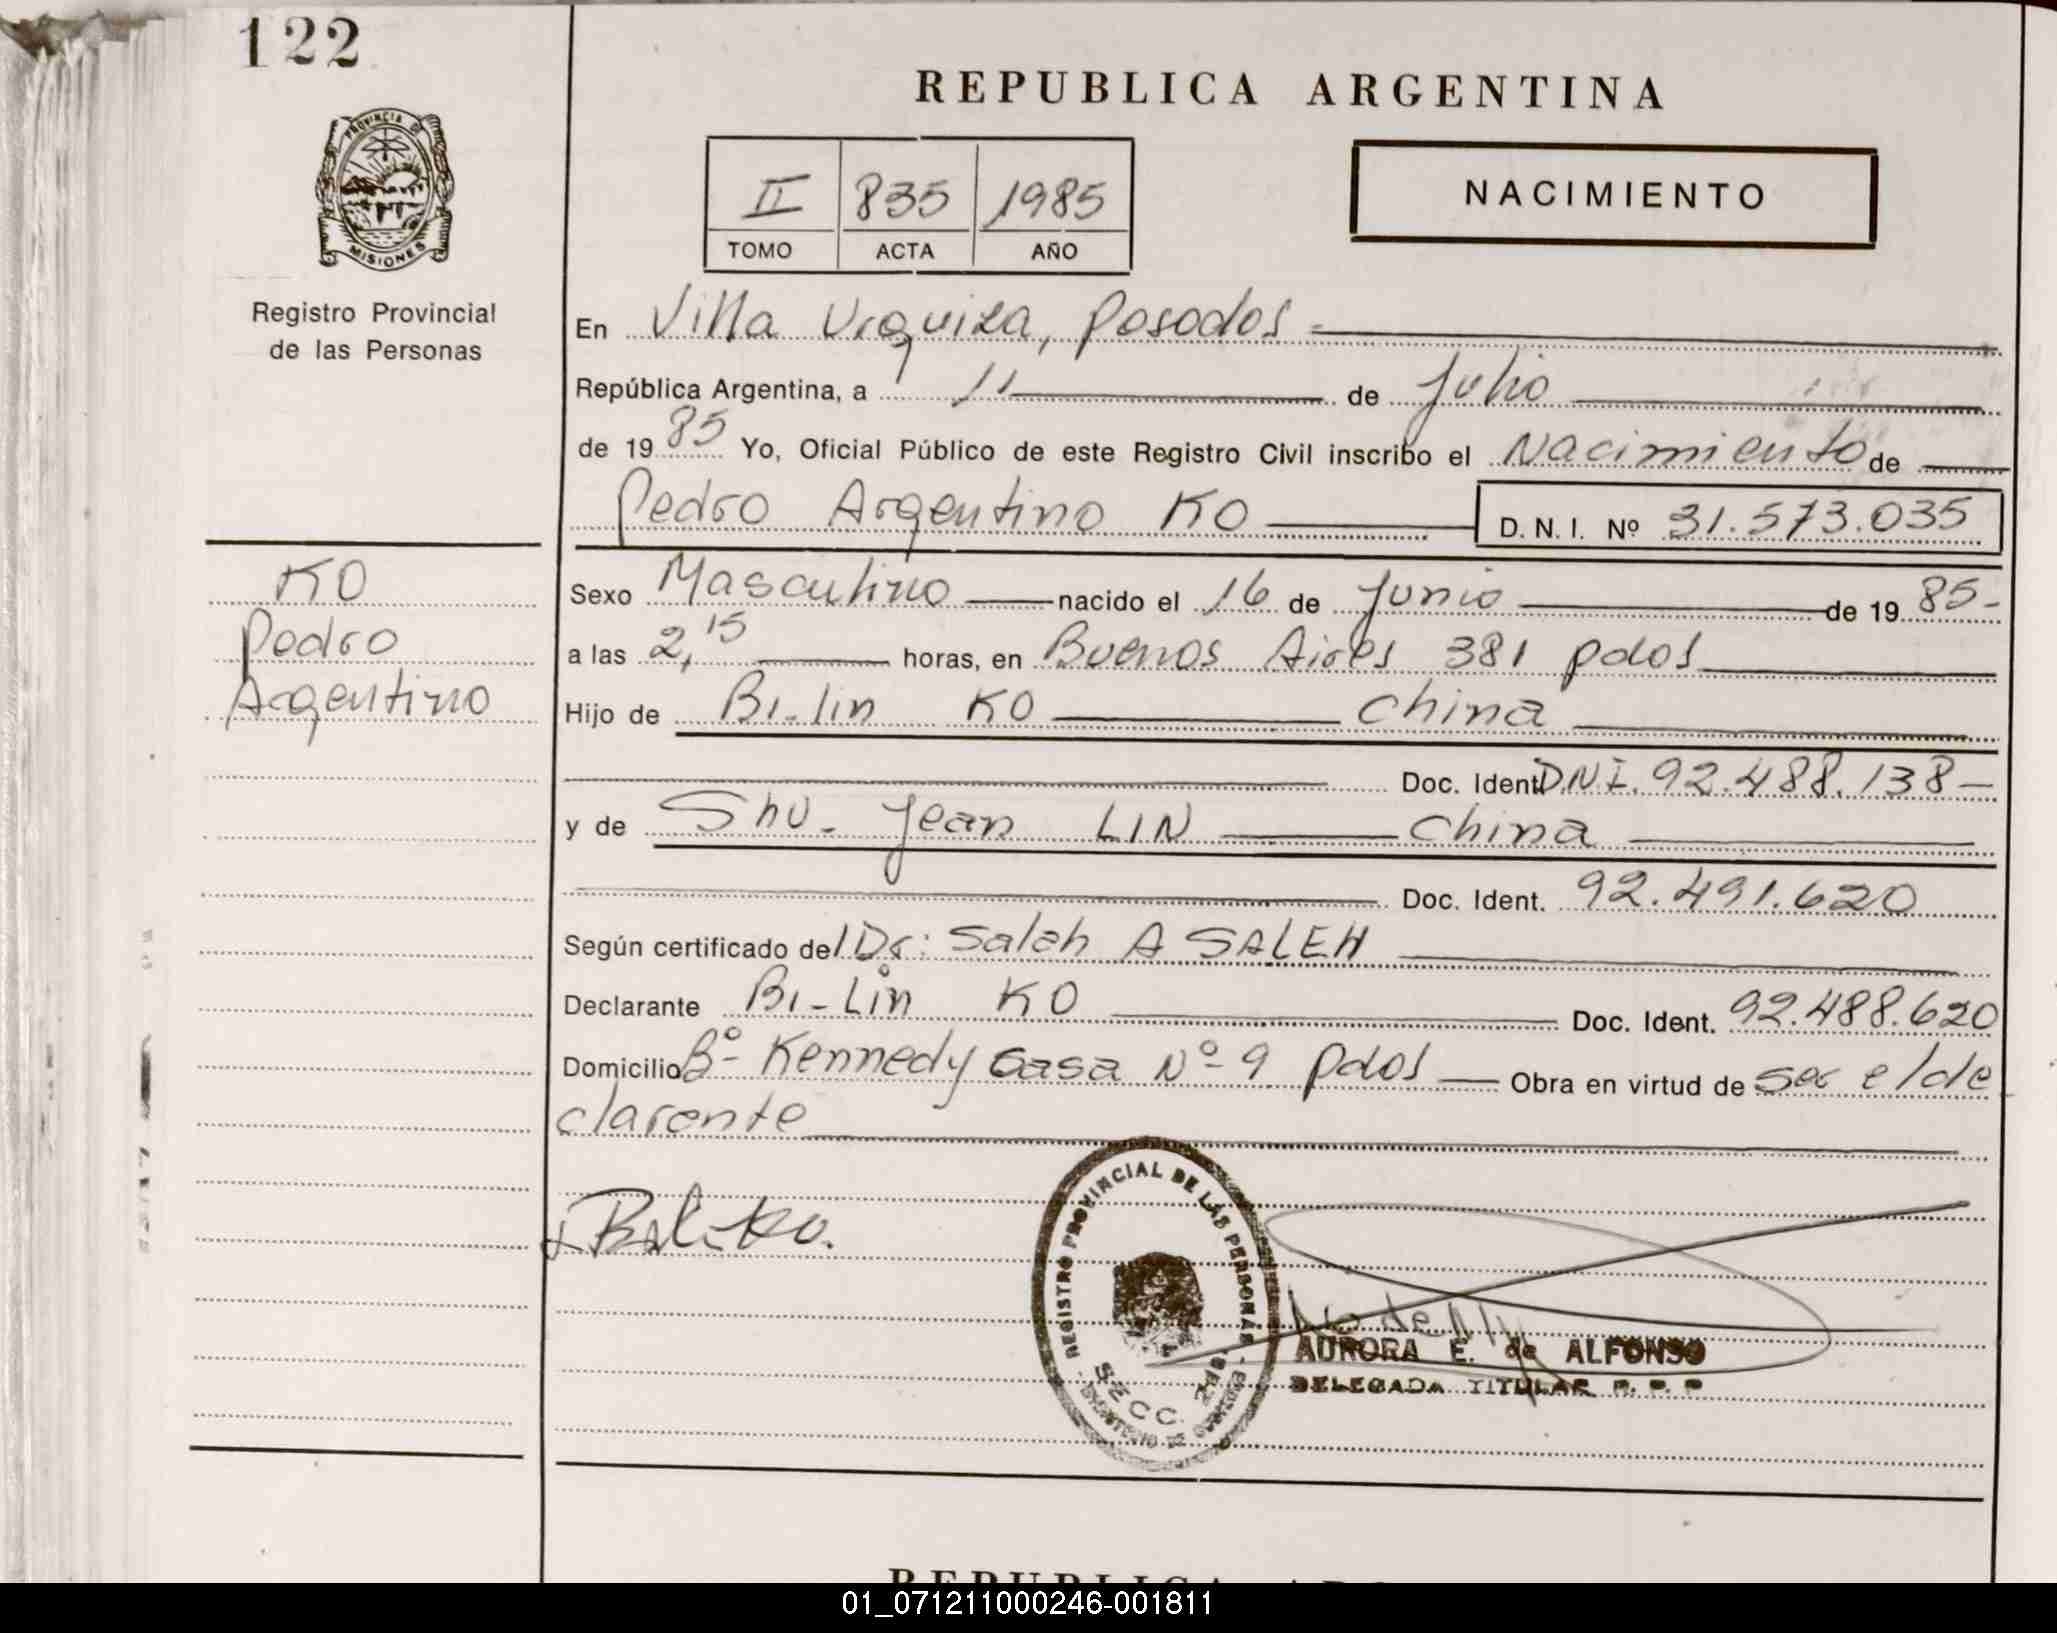 122
REPUBLICA ARGENTINA
PROVINCIA DE
MISIONES
II 835 1985
TOMO ACTA AÑO
NACIMIENTO
Registro Provincial
de las Personas
En Villa Urquiza, Posadas
República Argentina, a 11 de Julio
de 1985 Yo, Oficial Público de este Registro Civil inscribo el Nacimiento de
Pedro Argentino KO D. N. I. Nº 31.573.035
KO
Pedro
Argentino
Sexo Masculino nacido el 16 de Junio de 19 85-
a las 2,15 horas, en Buenos Aires 381 pdas
Hijo de Bi-lin KO China
Doc. Ident. D.N.I. 92.488.138-
y de Shu-Jean LIN China
Doc. Ident. 92.491.620
Según certificado del Dr: Saleh A SALEH
Declarante Bi-Lin KO Doc. Ident. 92.488.620
Domicilio Bº- Kennedy casa Nº-9 pdas Obra en virtud de ser el de
clarante
REGISTRO PROVINCIAL DE LAS PERSONAS
SECC.
AURORA E. de ALFONSO
DELEGADA TITULAR R. P. P
01_071211000246-001811